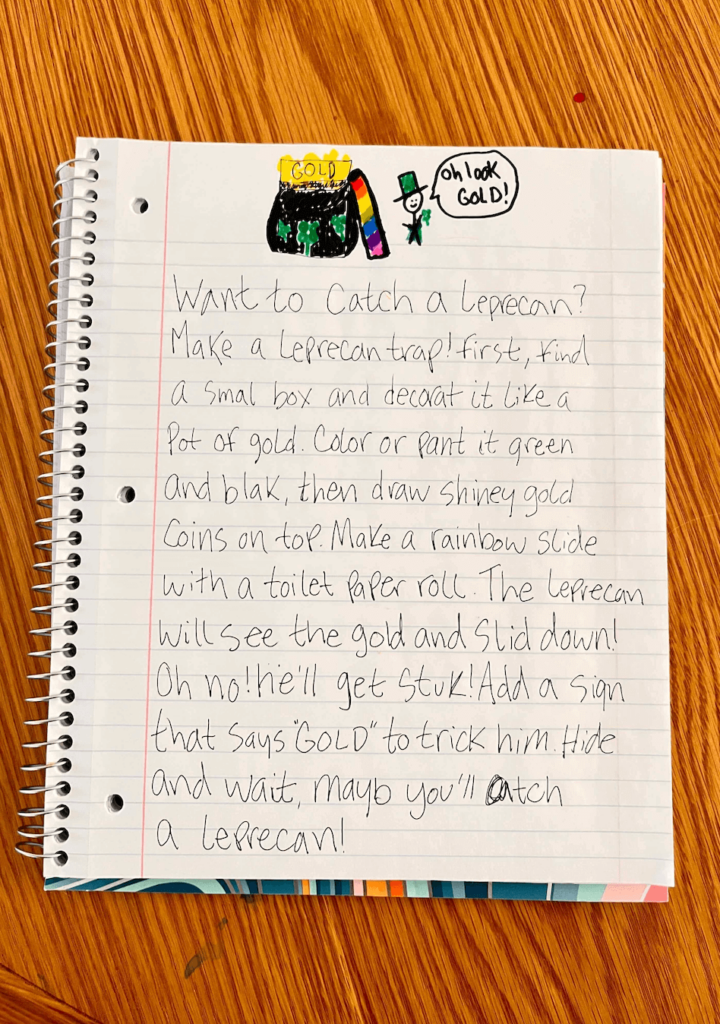 GOLD
Oh look
GOLD!
Want to Catch a Leprecan?
Make a Leprecan trap! first, find
a smal box and decorat it like a
Pot of gold. Color or pant it green
and blak, then draw shiney gold
Coins on top. Make a rainbow slide
with a toilet paper roll. The leprecan
will see the gold and slid down!
Oh no! he'll get stuk! Add a sign
that says "GOLD" to trick him. Hide
and wait, mayb you'll catch
a leprecan!